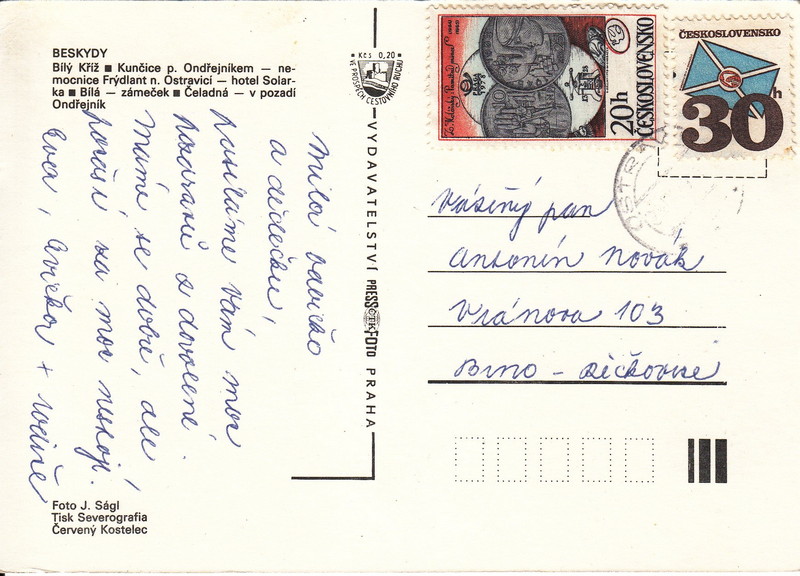 BESKYDY
Bílý Kříž ■ Kunčice p. Ondřejníkem — ne-
mocnice Frýdlant n. Ostravicí — hotel Solar-
ka ■ Bílá — zámeček ■ Čeladná — v pozadí
Ondřejník
Kčs 0,20
VE PROSPĚCH CESTOVNÍHO RUCHU
Milá babičko
a dědečku,
posíláme Vám moc
pozdravů z dovolené.
Máme se dobře, ale
počasí za moc nestojí.
Eva, Evička + rodiče
Foto J. Ságl
Tisk Severografia
Červený Kostelec
VYDAVATELSTVÍ PRESSFOTO PRAHA
ČTK
20h
ČESKOSLOVENSKO
ČESKOSLOVENSKO
30h
OSTRAVA
Vážený pan
Antonín Novák
Vránova 103
Brno - Řečkovice